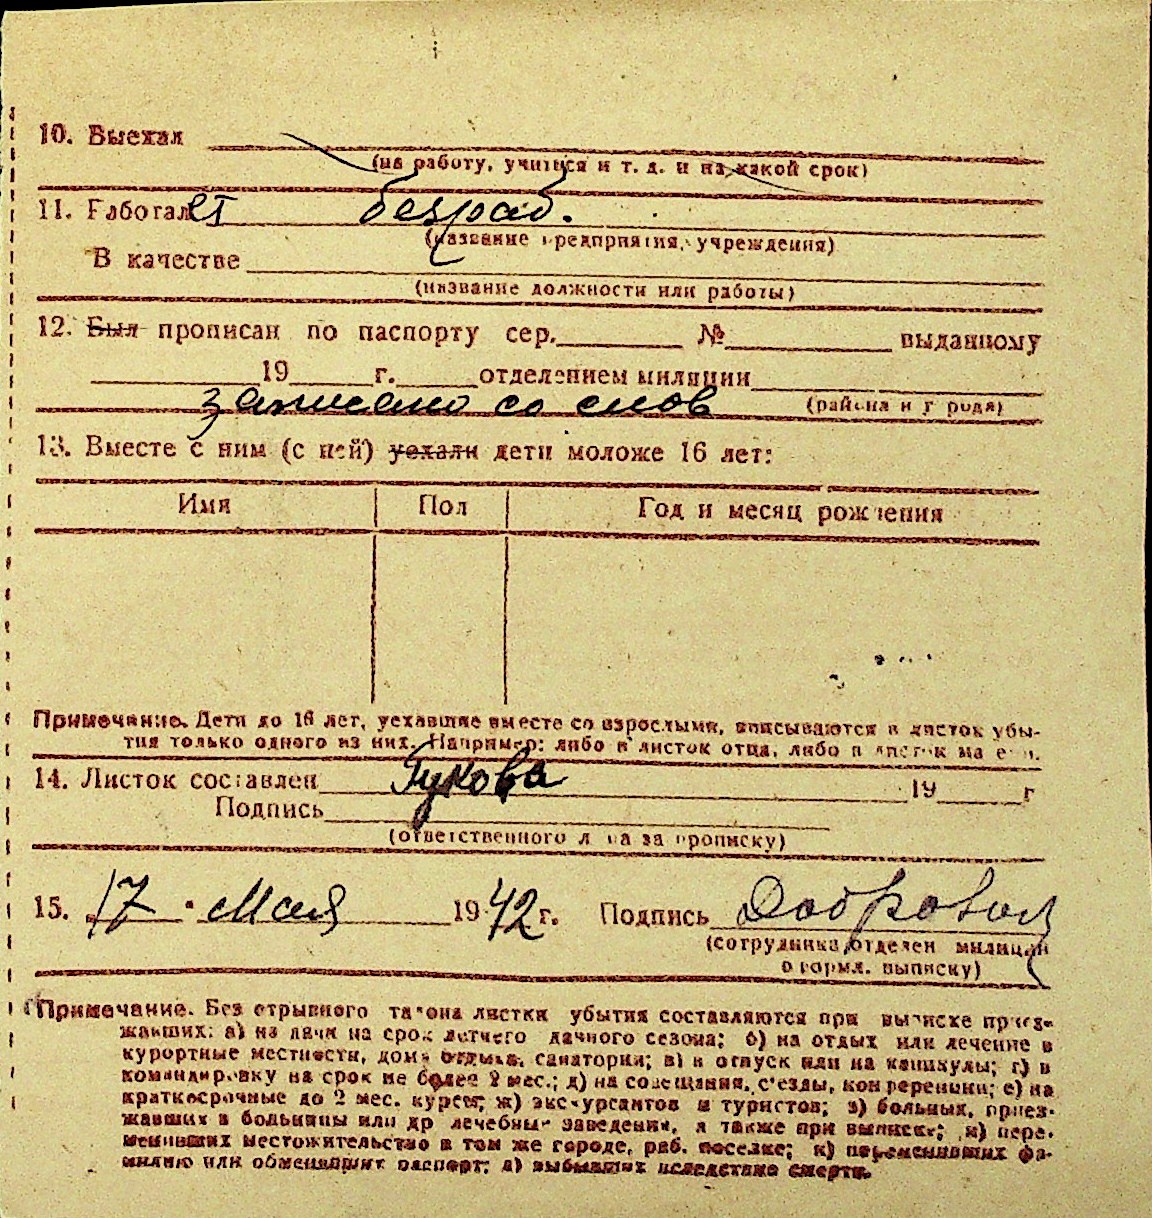 10. Выехал
(на работу, учиться и т. д. и на какой срок)
11. Работает безраб.
(название предприятия, учреждения)
В качестве
(название должности или работы)
12. Был прописан по паспорту сер. № выданному
19 г. отделением милиции
записано со слов (района и города)
13. Вместе с ним (с ней) уехали дети моложе 16 лет:
Имя Пол Год и месяц рождения
Примечание. Дети до 16 лет, уехавшие вместе со взрослыми, вписываются в листок убы-
тия только одного из них. Например: либо в листок отца, либо в листок матери.
14. Листок составлен Гукова 19 г
Подпись
(ответственного лица за прописку)
15. 17 " Мая 1942 г. Подпись
(сотрудника отделен милиции
оформл. выписку)
Примечание. Без отрывного талона листки убытия составляются при выписке приез-
жавших: а) на дачи на срок летнего дачного сезона; б) на отдых или лечение в
курортные местности, дома отдыха, санатории; в) в отпуск или на каникулы; г) в
командировку на срок не более 2 мес.; д) на совещания, с'езды, конференции; е) на
краткосрочные до 2 мес. курсы; ж) экскурсантов и туристов; з) больных, приез-
жавших в больницы или др лечебные заведения, а также при выписке; и) пере-
менивших местожительство в том же городе, раб. поселке; к) переменивших фа-
милию или обменявших паспорт; л) выбывших вследствие смерти.